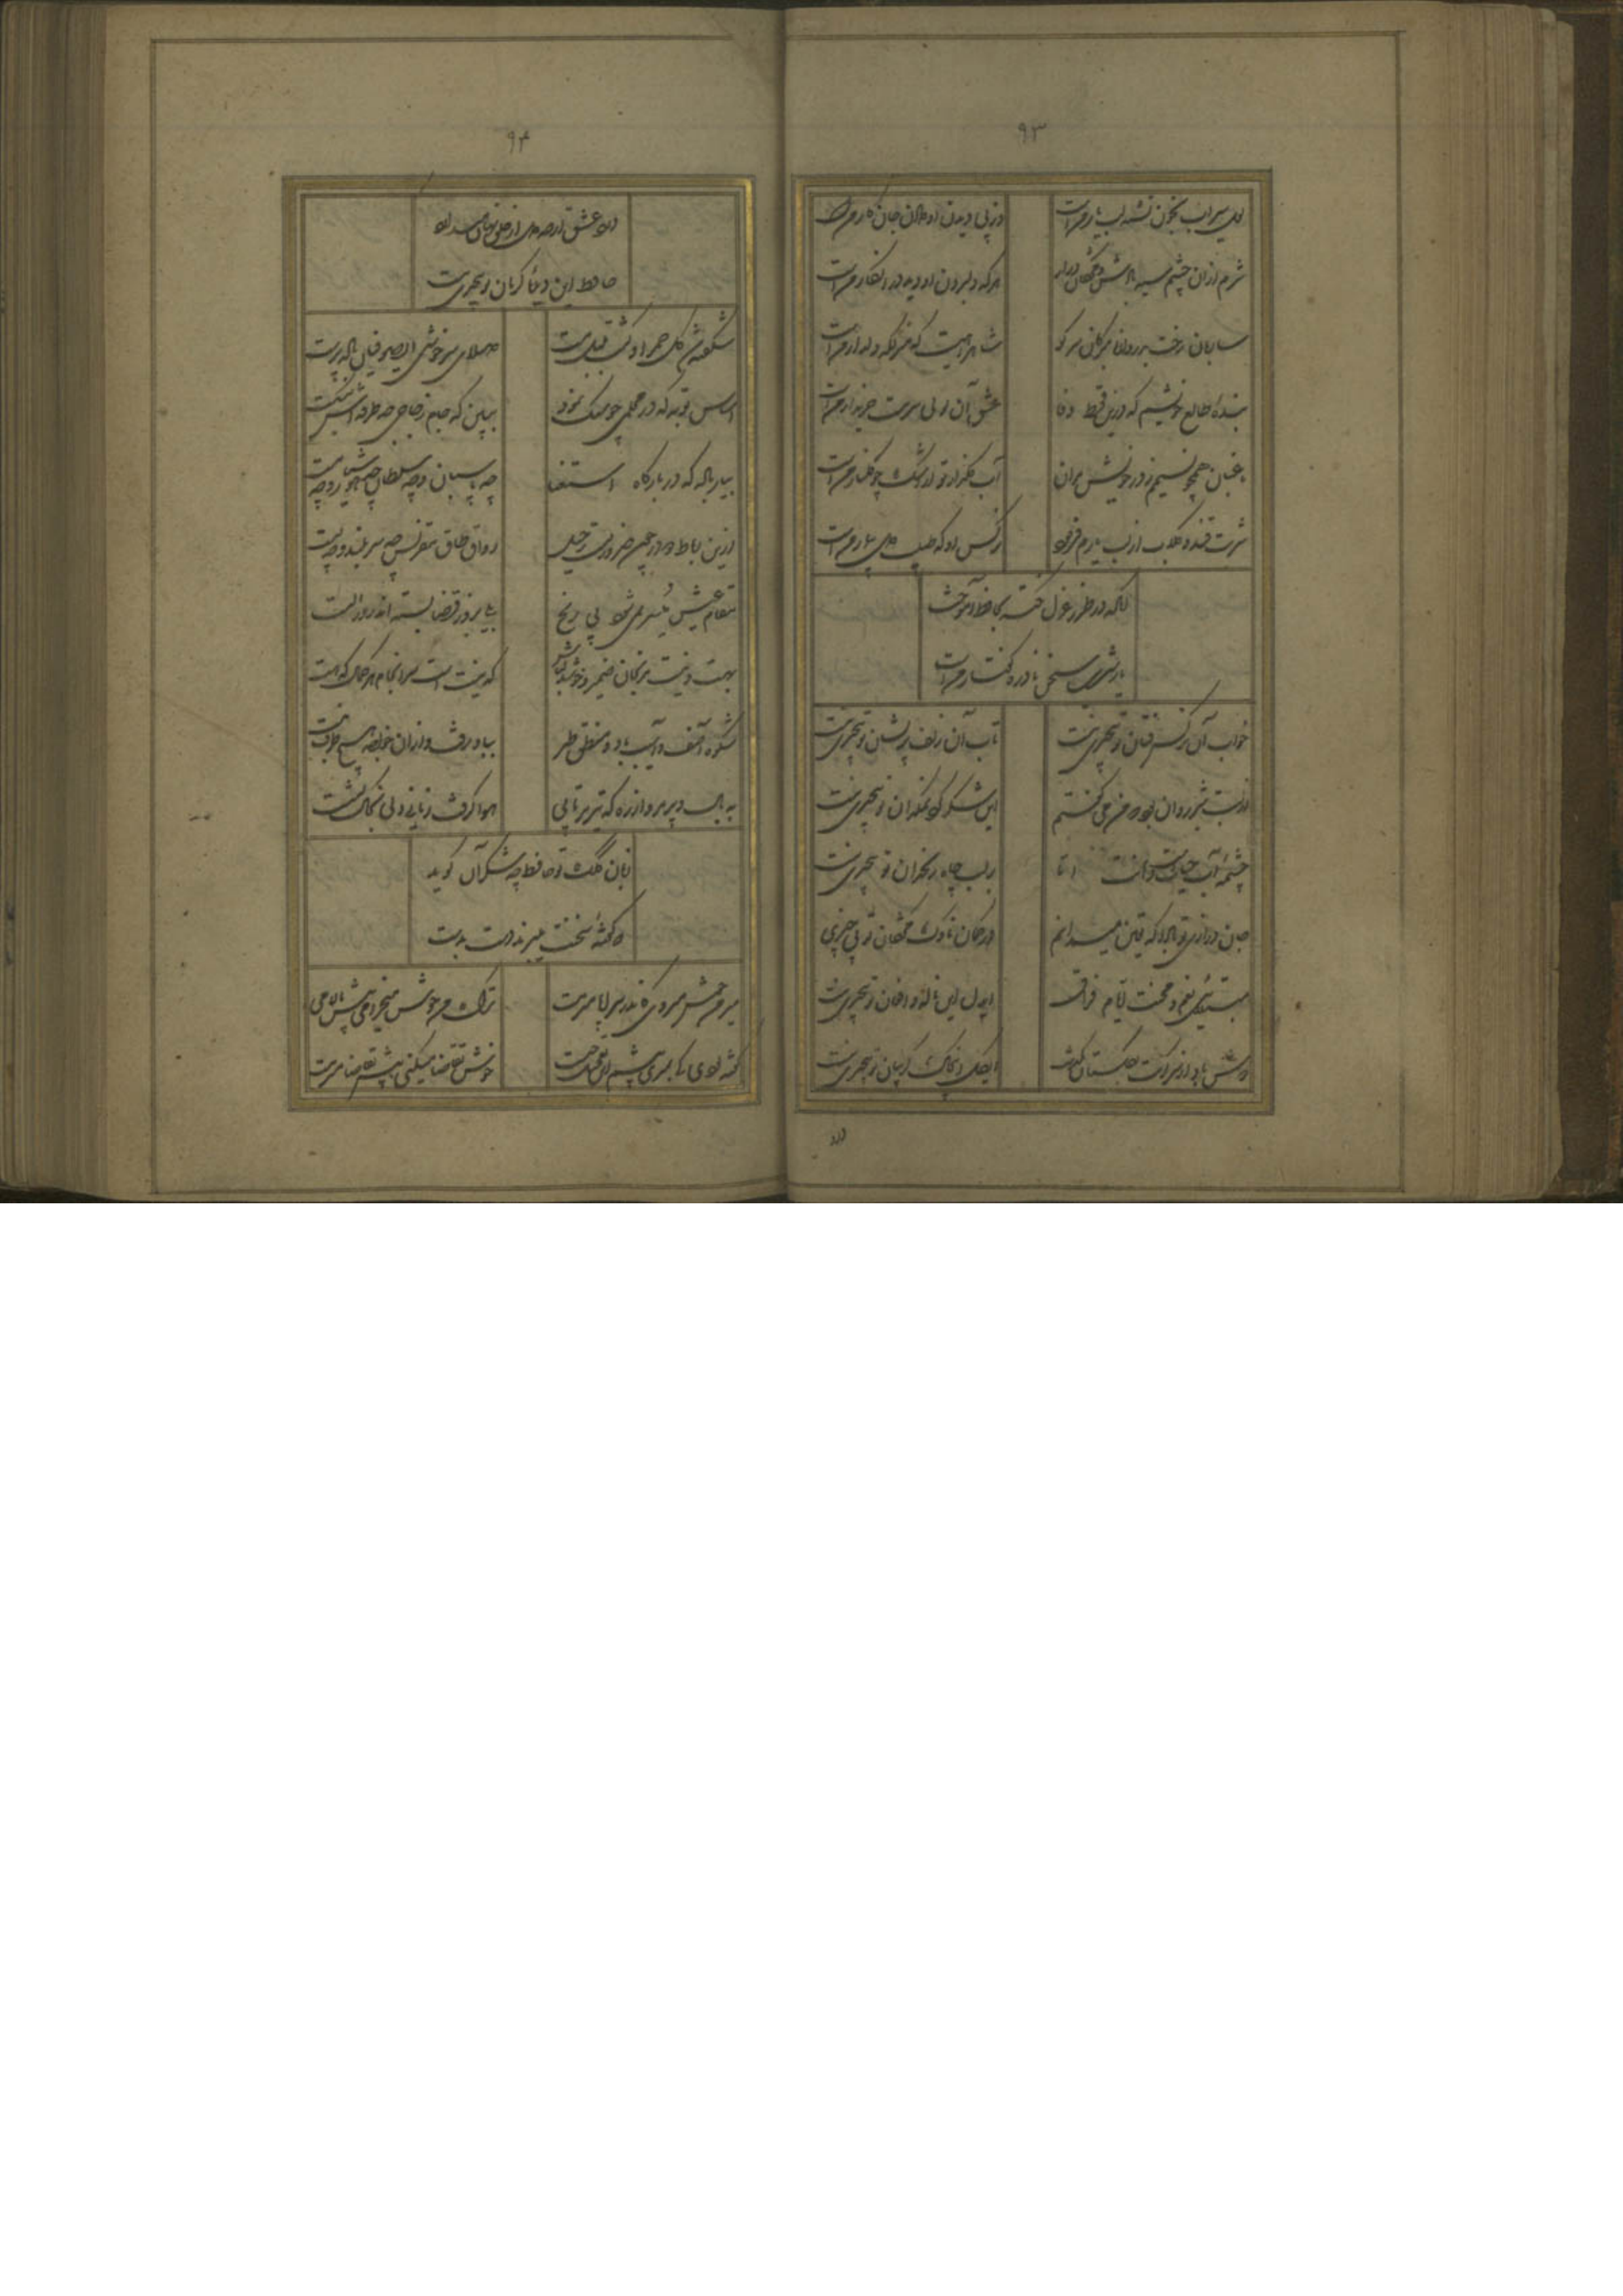 ۹۳
لعل سیراب بخون تشنه لب یار منست
وز پی دیدن او دادن جان کار منست
شرم ازان چشم سیه بادش و مژگان دراز
هرکه دل بردن او دید و در انکار منست
ساربان رخت بدروازه مبر کان سر کو
شاهراهیست که منزلکه دلدار منست
بنده طالع خویشم که درین قحط وفا
عشق آن لولی سرمست خریدار منست
باغبان همچو نسیم ز در خویش مران
آب گلزار تو از اشک چو گلنار منست
شربت قند و گلاب از لب یارم فرمود
نرگس او که طبیب دل بیمار منست
آنکه در طرز غزل نکته بحافظ آموخت
یار شیرین سخن نادره گفتار منست
خواب آن نرگس فتان تو بی چیزی نیست
تاب آن زلف پریشان تو بی چیزی نیست
از لبت شیر روان بود که من می گفتم
این شکر گرد نمکدان تو بی چیزی نیست
چشمه آب حیاتست دهانت اما
بر لب چاه زنخدان تو بی چیزی نیست
جان درازی تو بادا که یقین میدانم
در کمان ناوک مژگان تو بی چیزی نیست
مبتلایی بغم و محنت ایام فراق
ایدل این ناله و افغان تو بی چیزی نیست
دوش باد از سر کویت بگلستان گذشت
ایگل این چاک گریبان تو بی چیزی نیست
درد
۹۴
درد عشق ارچه دل از خلق نهان میدارد
حافظ این دیده گریان تو بی چیزی نیست
شکفته شد گل حمرا و گشت بلبل مست
صلای سرخوشی ای صوفیان باده پرست
اساس توبه که در محکمی چو سنگ نمود
ببین که جام زجاجی چه طرفه اش بشکست
بیار باده که در بارگاه استغنا
چه پاسبان و چه سلطان چه هوشیار و چه مست
ازین رباط دو در چون ضرورتست رحیل
رواق طاق معیشت چه سربلند و چه پست
مقام عیش میسر نمی شود بی رنج
بلی بروز قضا بسته اند روز الست
بهست و نیست مرنجان ضمیر و خوش دل باش
که نیستیست سرانجام هر کمال که هست
شکوه آصفی و اسب باد و منطق طیر
بباد رفت و ازان خواجه هیچ طرف نبست
به بال و پر مرو از ره که تیر پرتابی
هوا گرفت زمانی ولی بخاک نشست
زبان کلک تو حافظ چه شکر آن گوید
که گفته سخنت میبرند دست بدست
میر من خوش میروی کاندر سر و پا میرمت
ترک من خوش میخرامی پیش بالا میرمت
گفته بودی کی بمیری پیش من تعجیل چیست
خوش تقاضا میکنی پیش تقاضا میرمت